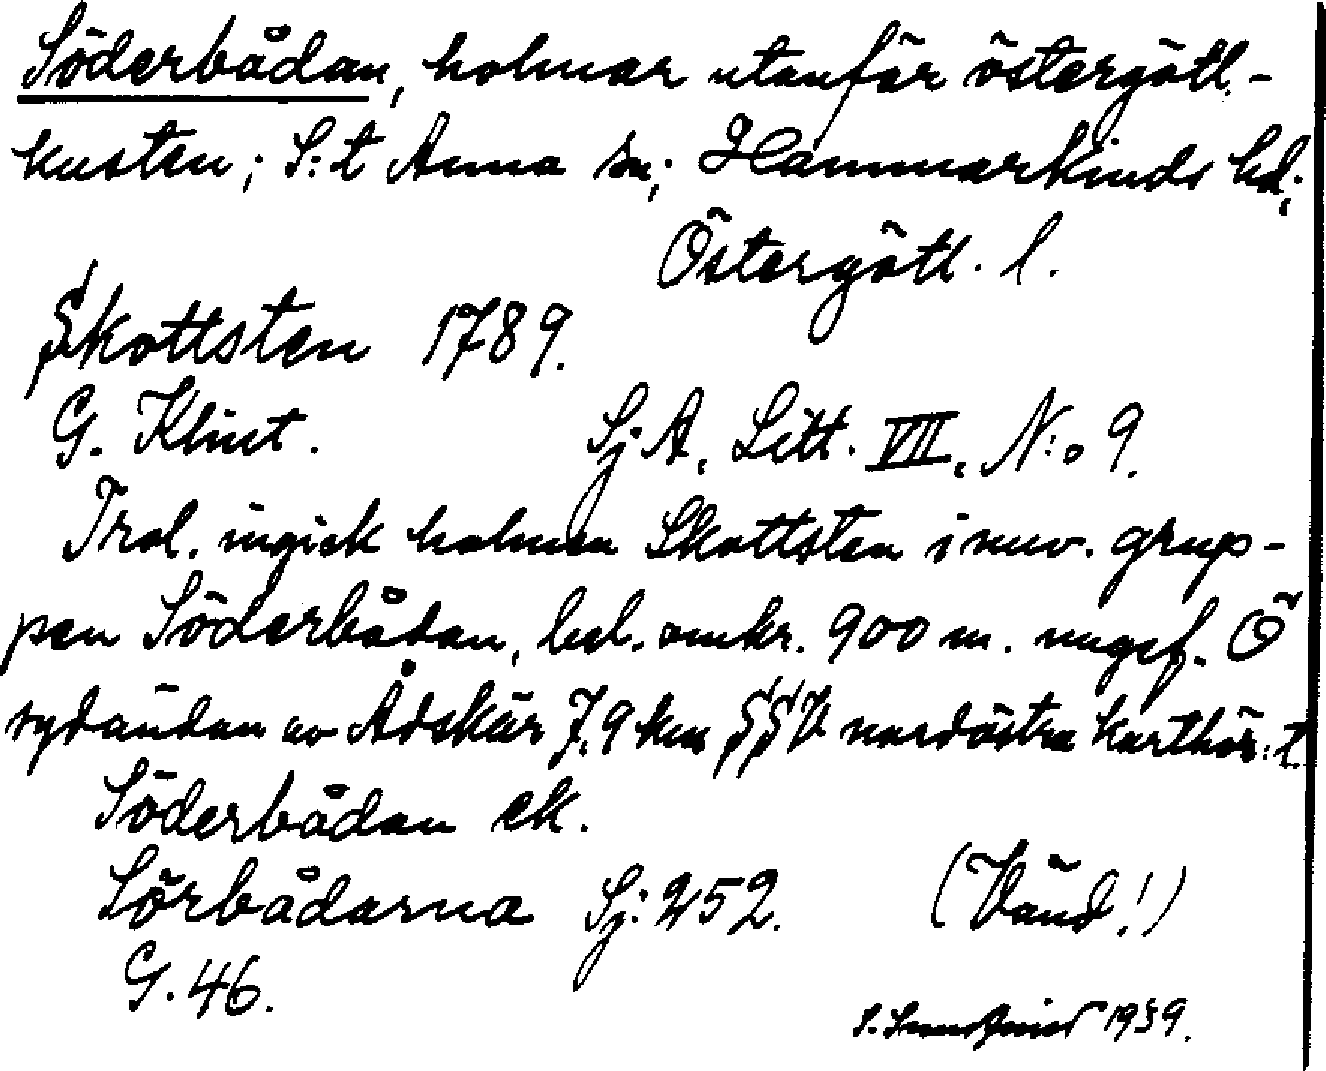 Söderbådan, holmar utanför östergötl.-
kusten; S:t Anna sn; Hammarkinds hd;
Östergötl. l.
Skottsten 1789.
G. Klint. Sj. A. Litt. VII. N:o 9.
Trol. ingick holmen Skottsten i nuv. grup-
pen Söderbådan, bel. omkr. 900 m. ungef. Ö
sydändan av Ådskär 7,9 km SSV nordöstra karthör:t
Söderbådan ek.
Sörbådarna Sj: 252. (Vänd!)
G. 46.
1939.